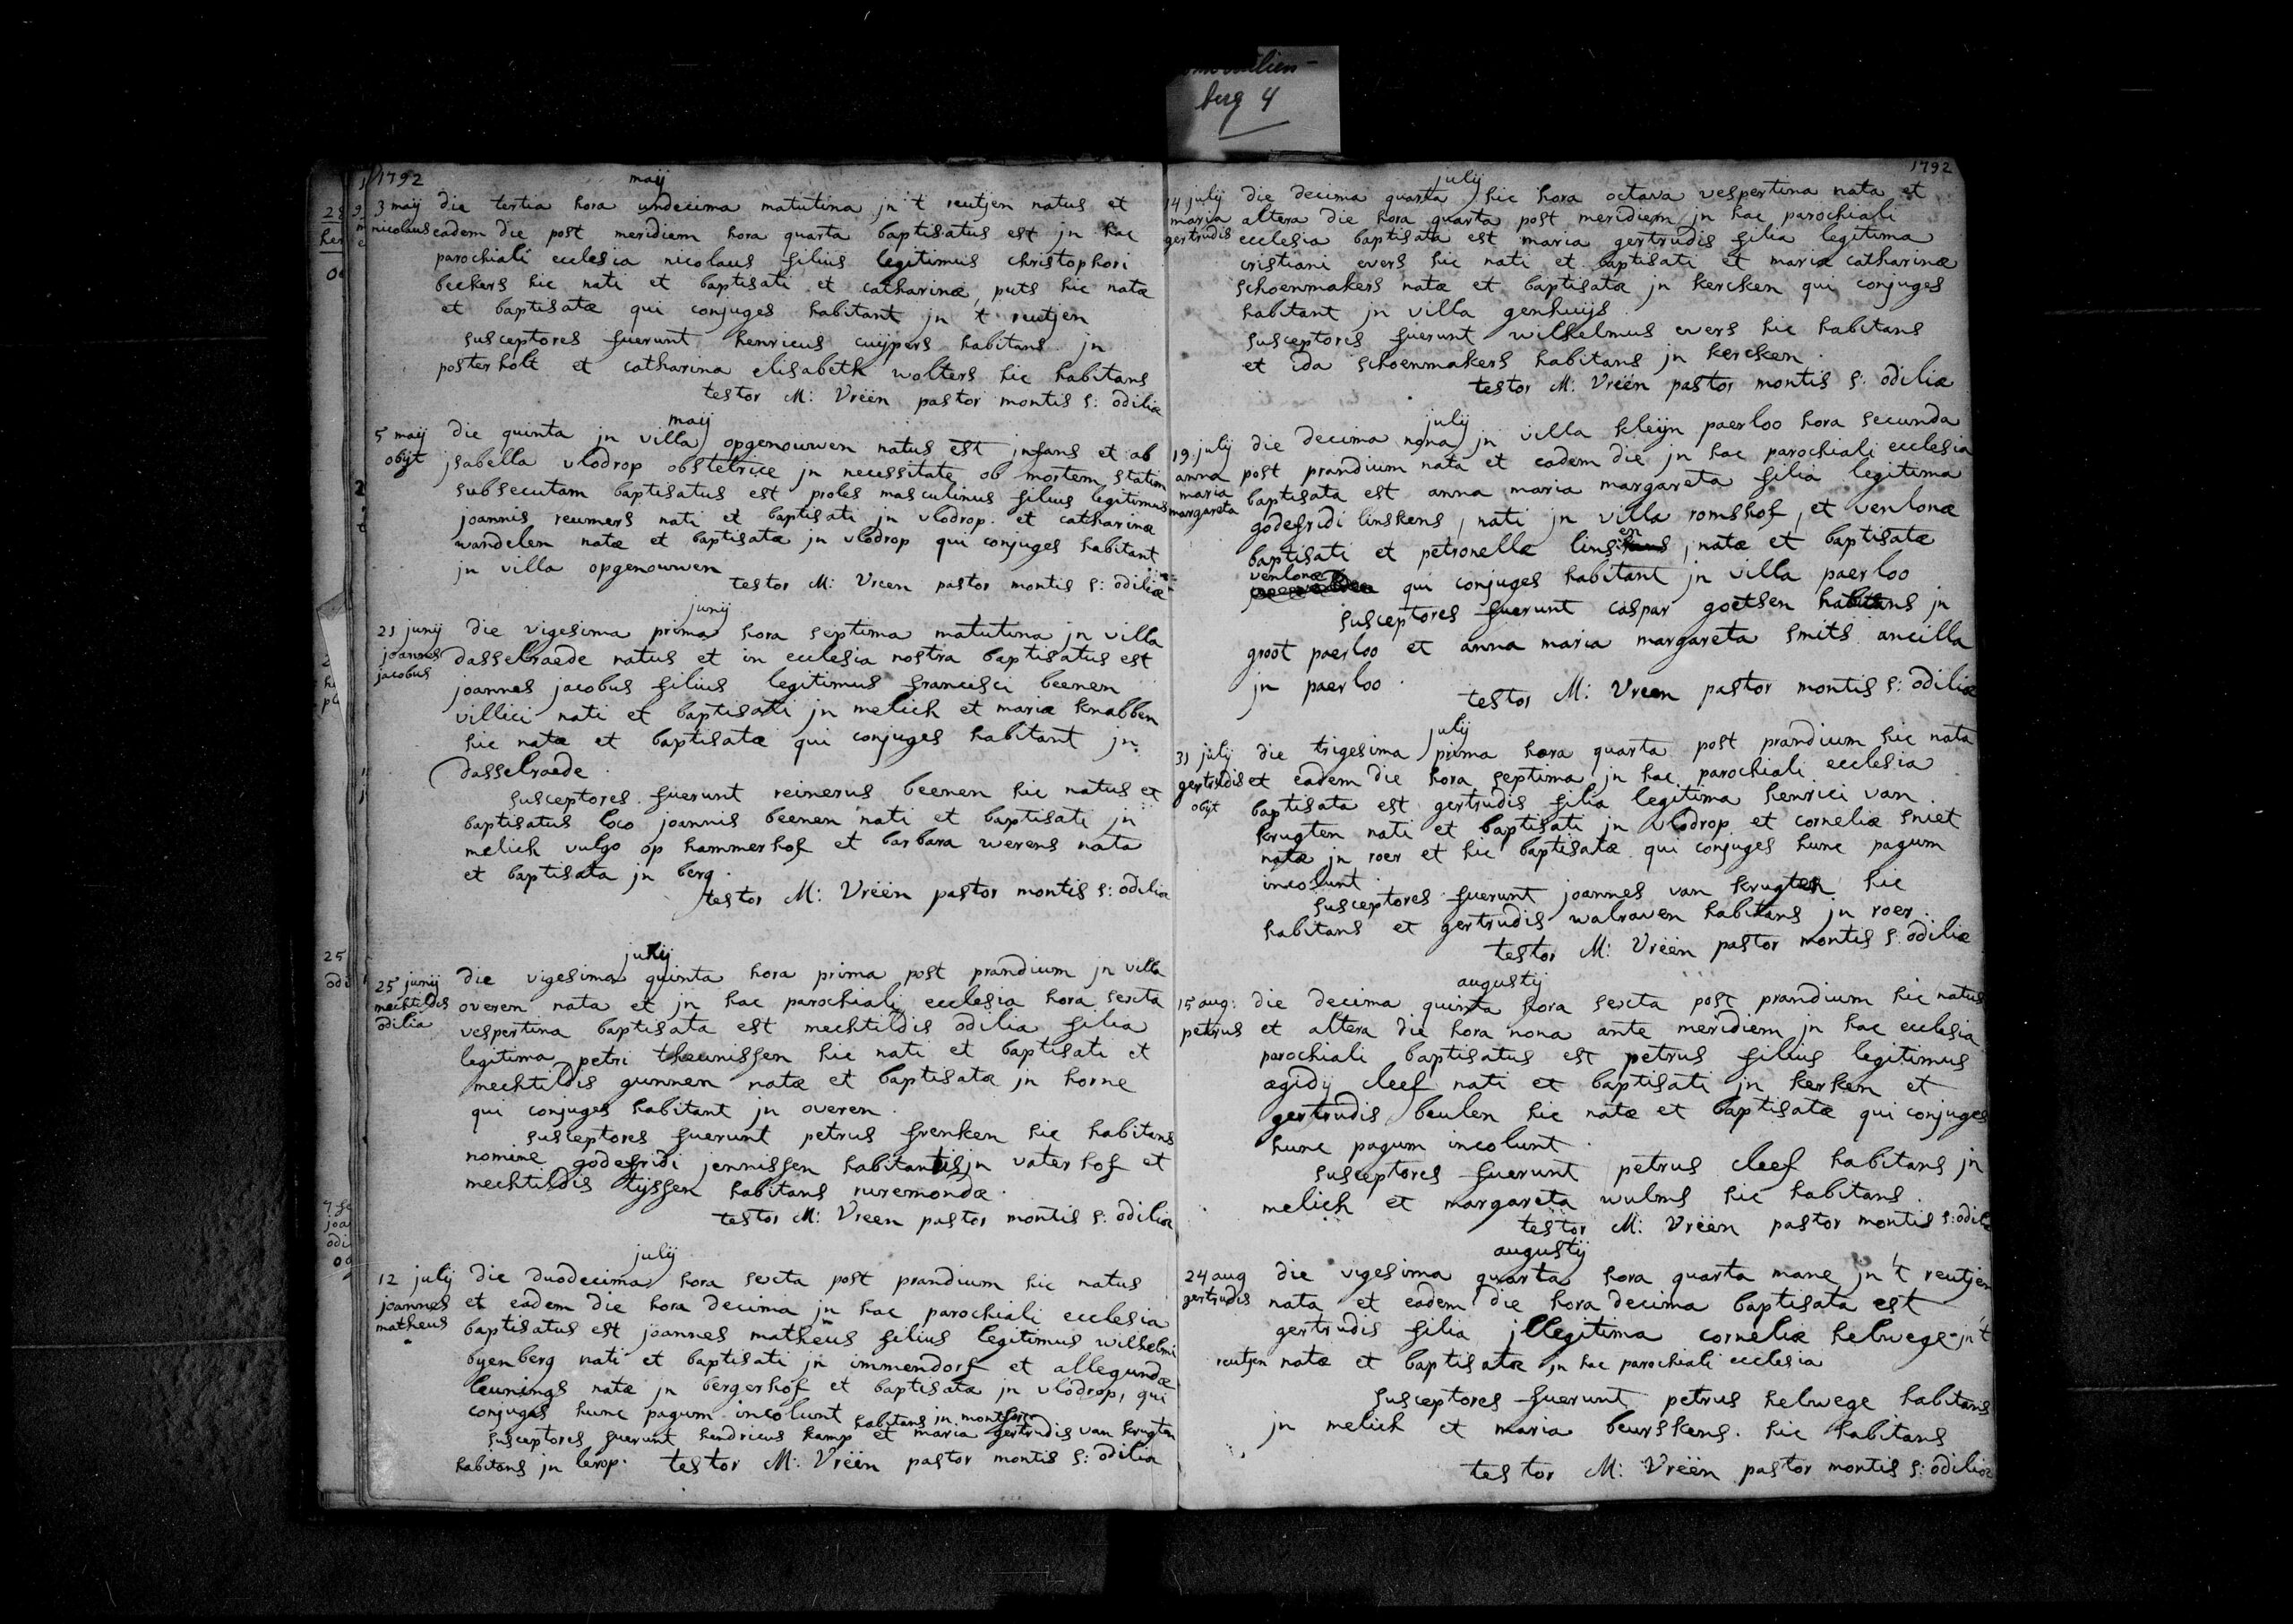 berg 4
1792
maij
3 maij die tertia hora undecima matutina jn 't reutjen natus et
nicolaus eadem die post meridiem hora quarta baptisatus est jn hac
parochiali ecclesia nicolaus filius legitimus christophori
beckers hic nati et baptisati et catharinæ puts hic natæ
et baptisatæ qui conjuges habitant jn 't reutjen
susceptores fuerunt henricus cuijpers habitans jn
posterholt et catharina elisabeth wolters hic habitans
testor M: Vrëën pastor montis s: odiliæ
maij
5 maij die quinta jn villa opgenouwen natus est jnfans et ab
obijt jsabella vlodrop obstetrice jn necessitate ob mortem statim
subsecutam baptisatus est proles masculinus filius legitimus
joannis reumers nati et baptisati jn vlodrop et catharinæ
wandelen natæ et baptisatæ jn vlodrop qui conjuges habitant
jn villa opgenouwen
testor M: Vreen pastor montis s: odiliæ
junij
21 junij die vigesima prima hora septima matutina jn villa
joannes dasselraede natus et in ecclesia nostra baptisatus est
jacobus joannes jacobus filius legitimus francisci beenen
villici nati et baptisati jn melick et mariæ knabben
hic natæ et baptisatæ qui conjuges habitant jn
dasselraede
susceptores fuerunt reinerus beenen hic natus et
baptisatus loco joannis beenen nati et baptisati jn
melick vulgo op hammerhof et barbara werens nata
et baptisata jn berg.
testor M: Vrëën pastor montis s: odiliæ
junij
25 junij die vigesima quinta hora prima post prandium jn villa
mechtildis overen nata et jn hac parochiali ecclesia hora sexta
odilia vespertina baptisata est mechtildis odilia filia
legitima petri theunissen hic nati et baptisati et
mechtildis gunnen natæ et baptisatæ jn horne
qui conjuges habitant jn overen.
susceptores fuerunt petrus frenken hic habitans
nomine godefridi jennissen habitantis jn vaterhof et
mechtildis tijssen habitans ruremondæ.
testor M: Vreen pastor montis s: odiliæ
julij
12 julij die duodecima hora sexta post prandium hic natus
joannes et eadem die hora decima jn hac parochiali ecclesia
matheus baptisatus est joannes matheus filius legitimus wilhelmi
byenberg nati et baptisati jn immendorf et allegundæ
leunings natæ jn bergerhof et baptisatæ jn vlodrop, qui
conjuges hunc pagum incolunt
habitans in montfort
susceptores fuerunt hendricus kamp et maria gertrudis van krugten
habitans jn lerop. testor M: Vrëën pastor montis s: odiliæ
1792
julij
14 julij die decima quarta hic hora octava vespertina nata et
maria altera die hora quarta post meridiem jn hac parochiali
gertrudis ecclesia baptisata est maria gertrudis filia legitima
cristiani evers hic nati et baptisati et mariæ catharinæ
schoenmakers natæ et baptisatæ jn kercken qui conjuges
habitant jn villa genhuijs.
susceptores fuerunt wilhelmus evers hic habitans
et ida schoenmakers habitans jn kercken.
testor M: Vrëën pastor montis s: odiliæ
julij
19 julij die decima nona jn villa kleijn paerloo hora secunda
anna post prandium nata et eadem die jn hac parochiali ecclesia
maria baptisata est anna maria margareta filia legitima
margareta godefridi linskens, nati jn villa romshof, et venlonæ
baptisati et petronellæ linssen, natæ et baptisatæ
venlonæ qui conjuges habitant jn villa paerloo
susceptores fuerunt caspar goetsen habitans jn
groot paerloo et anna maria margareta smits ancilla
jn paerloo.
testor M: Vreen pastor montis s: odiliæ
julij
31 julij die trigesima prima hora quarta post prandium hic nata
gertrudis et eadem die hora septima jn hac parochiali ecclesia
obijt baptisata est gertrudis filia legitima henrici van
krugten nati et baptisati jn vlodrop et corneliæ sniet
natæ jn roer et hic baptisatæ qui conjuges hunc pagum
incolunt.
susceptores fuerunt joannes van krugten hic
habitans et gertrudis walraven habitans jn roer.
testor M: Vrëën pastor montis s: odiliæ
augustij
15 aug: die decima quinta hora sexta post prandium hic natus
petrus et altera die hora nona ante meridiem jn hac ecclesia
parochiali baptisatus est petrus filius legitimus
ægidij cleef nati et baptisati jn kerken et
gertrudis beulen hic natæ et baptisatæ qui conjuges
hunc pagum incolunt.
susceptores fuerunt petrus cleef habitans jn
melick et margareta wulms hic habitans.
testor M: Vrëën pastor montis s: odiliæ
augustij
24 aug die vigesima quarta hora quarta mane jn 't reutjen
gertrudis nata et eadem die hora decima baptisata est
gertrudis filia jllegitima corneliæ helwege jn 't
reutjen natæ et baptisatæ jn hac parochiali ecclesia
susceptores fuerunt petrus helwege habitans
jn melick et maria beurskens. hic habitans
testor M: Vrëën pastor montis s: odiliæ